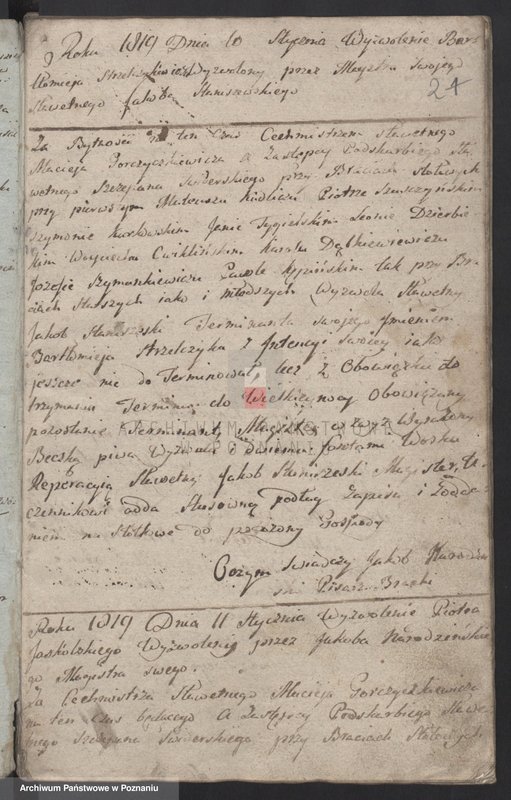 Roku 1819 Dnia 10 Stycznia Wyzwolenie Bart
łomieja Strzelczykiewicz Wyzwolony przez Magstra Swojego
Sławetnego Jakóba Staniszewskiego
21
Za Bytności na ten Czas Cechmistrza Sławetnego
Macieja Gorczyczkiewicza a Zastępcy Podskarbiego Sła
wetnego Szczepana Swiderskiego przy Braciach Stołowych
przy pierwszym Mateuszu Piotrze Szmyczyńskim
Szymonie Kurkowskim Janie Tygielskim Leonie Dzierbic
kim Woyciechu Cwiklińskim Karolu Dąbkiewiczu
Jozefie Szymankiewiczu Pawle tak przy Bra
ciach Starszych iako i młodszych Wyzwala Sławetny
Jakob Staniszeski Terminanta swojego Jmieniem
Bartłomieja Strzelczyka z Jntencyi Swoiey iako
jeszcze nie do Terminował, lecz z Obowiązku do
trzymania Terminu do Wielkieynocy Obowiązany
pozostanie Terminant, Magster zaś przez
Beczką piwa Wyzwala i daniem Wosku
Reperacyią Sławetny Jakob Staniszeski Magister, U
czennikowi odda Stosowną podług Zapisu i
niem na Stołkowe do Gospody
Oczym Swiadczy Jakob Narodzeń
ski Pisarz Bracki
Roku 1819 Dnia 11 Stycznia Wyzwolenie Piotra
Jaskolskiego Wyzwolenie przez Jakuba Narodzeńskie
go Magstra swego.
Za Cechmistrza Sławetnego Macieja Gorczyczkiewicza
na ten Czas będącego a Zastępcy Podskarbiego Sławe
tnego Szczepana Swiderskiego przy Braciach Stołowych
ARCHIWUM PAŃSTWOWE
W POZNANIU
Archiwum Państwowe w Poznaniu